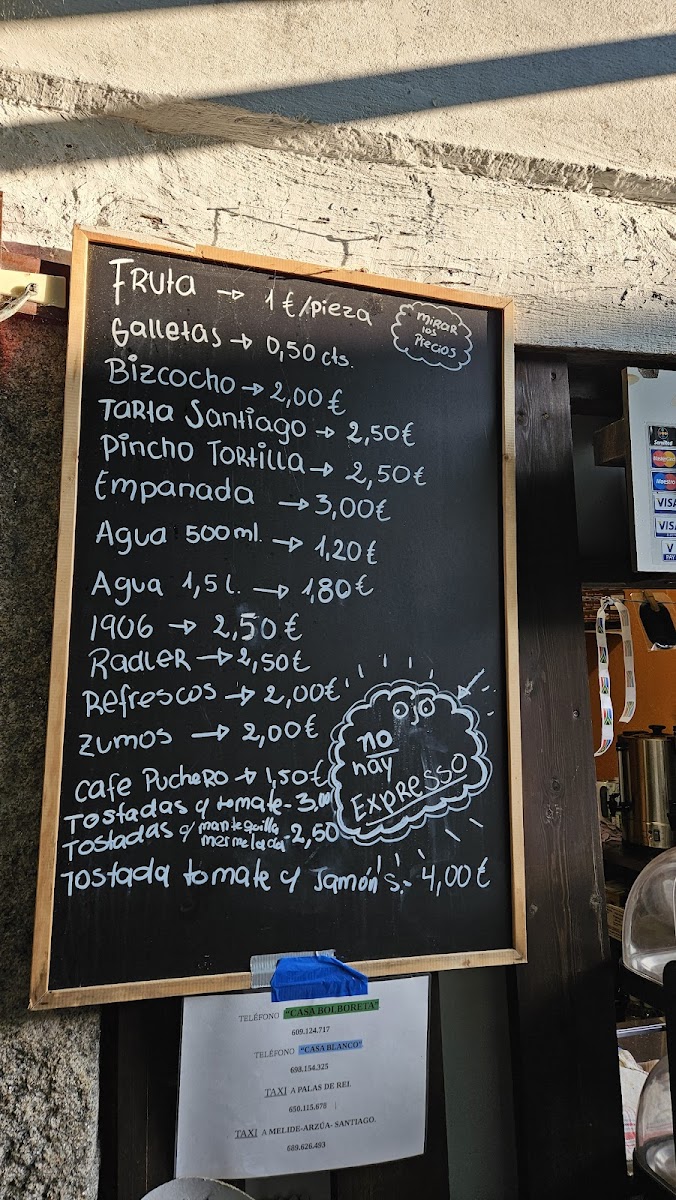 Fruta → 1 €/pieza
mirar
los
Precios
Galletas → 0,50 cts.
Bizcocho → 2,00 €
Tarta Santiago → 2,50 €
Pincho Tortilla → 2,50 €
Empanada → 3,00 €
Agua 500 ml. → 1,20 €
Agua 1,5 l. → 1,80 €
1906 → 2,50 €
Radler → 2,50 €
Refrescos → 2,00 €
Zumos → 2,00 €
no
hay
Expresso
Cafe Puchero → 1,50 €
Tostadas y tomate - 3,00
Tostadas c/ mantequilla
mermelada - 2,50
Tostada tomate y Jamón S.- 4,00 €
TELÉFONO "CASA BOLBORETA"
609.124.717
TELÉFONO "CASA BLANCO"
698.154.325
TAXI A PALAS DE REI.
650.115.670
TAXI A MELIDE-ARZÚA- SANTIAGO.
689.626.493
ServiRed
MasterCard
Maestro
VISA
VISA
V
PAY